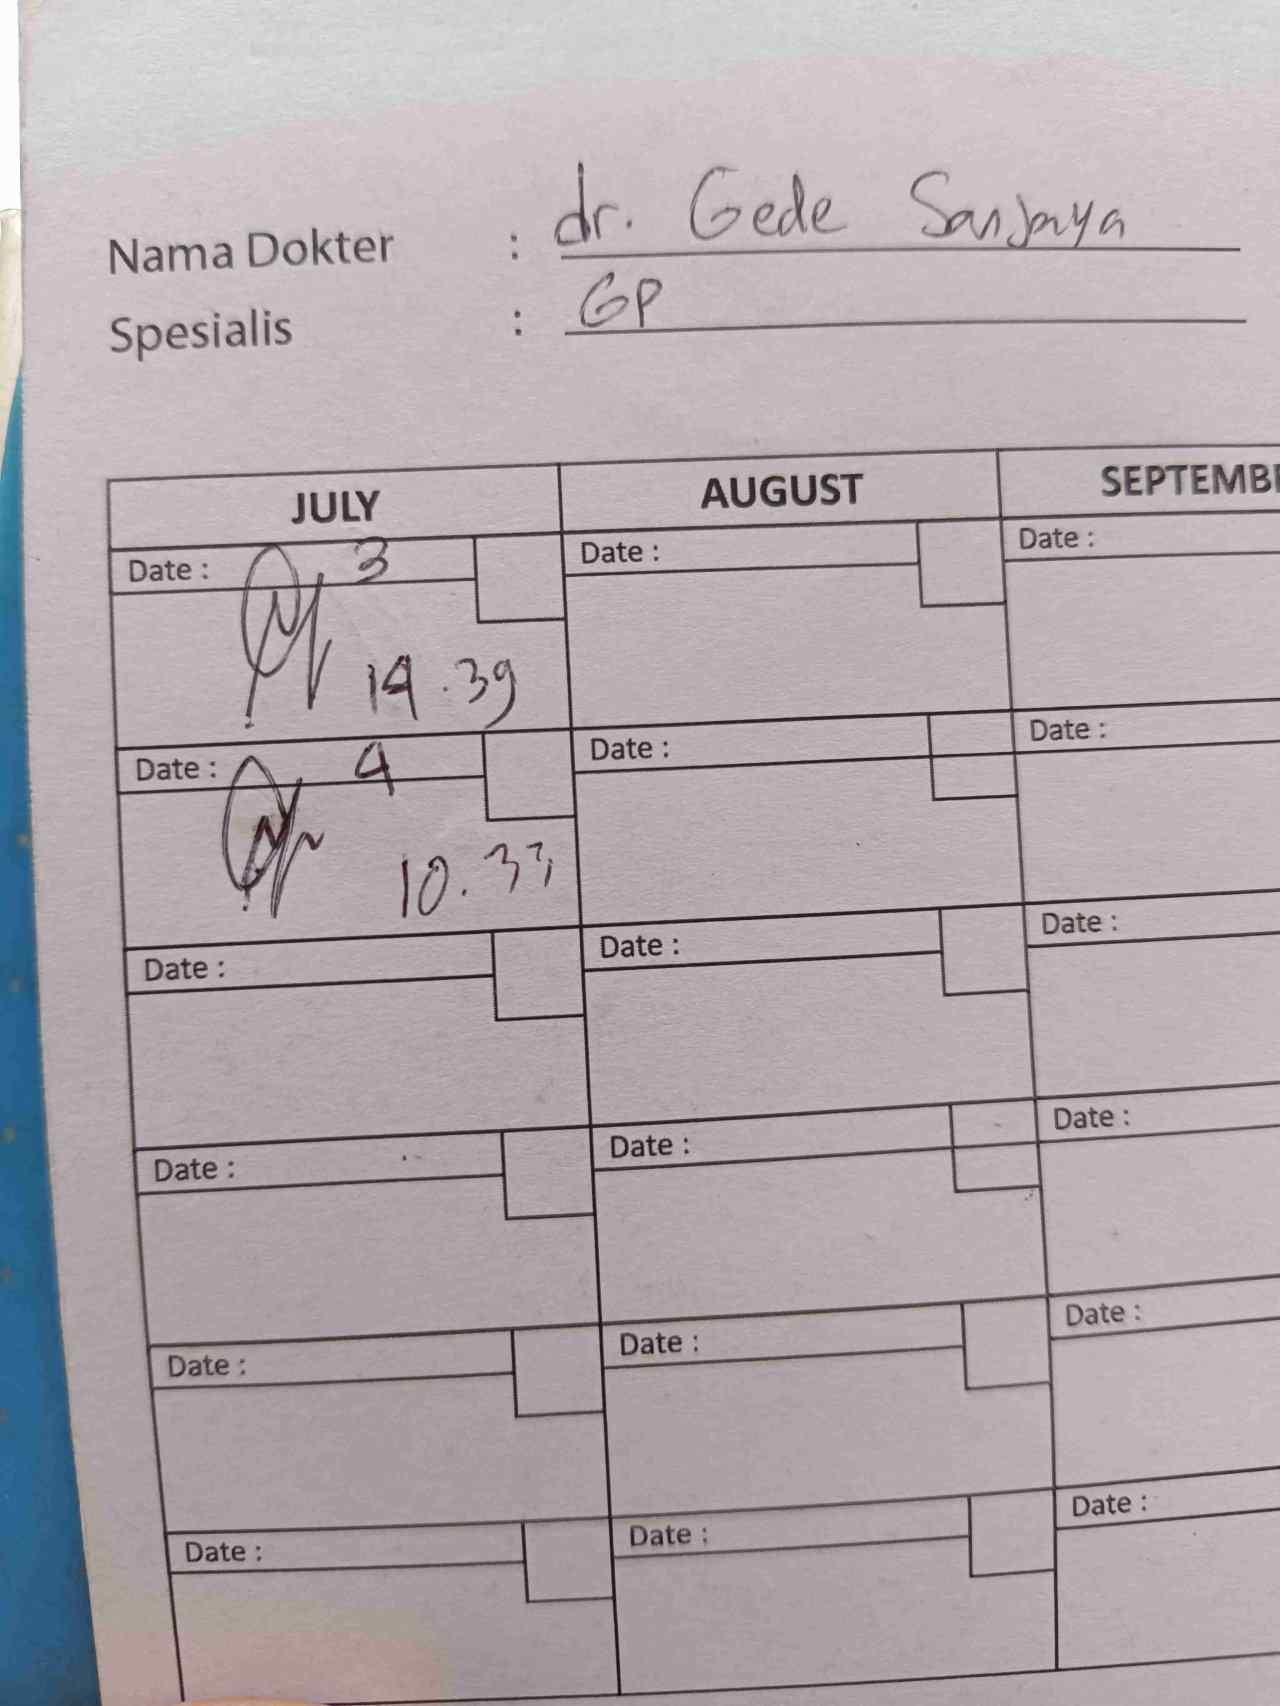 Nama Dokter : dr. Gede Sanjaya
Spesialis : GP
JULY AUGUST SEPTEMBE
Date : 3 Date : Date :
14.39
Date : 4 Date : Date :
10.33
Date : Date : Date :
Date : Date : Date :
Date : Date : Date :
Date : Date : Date :